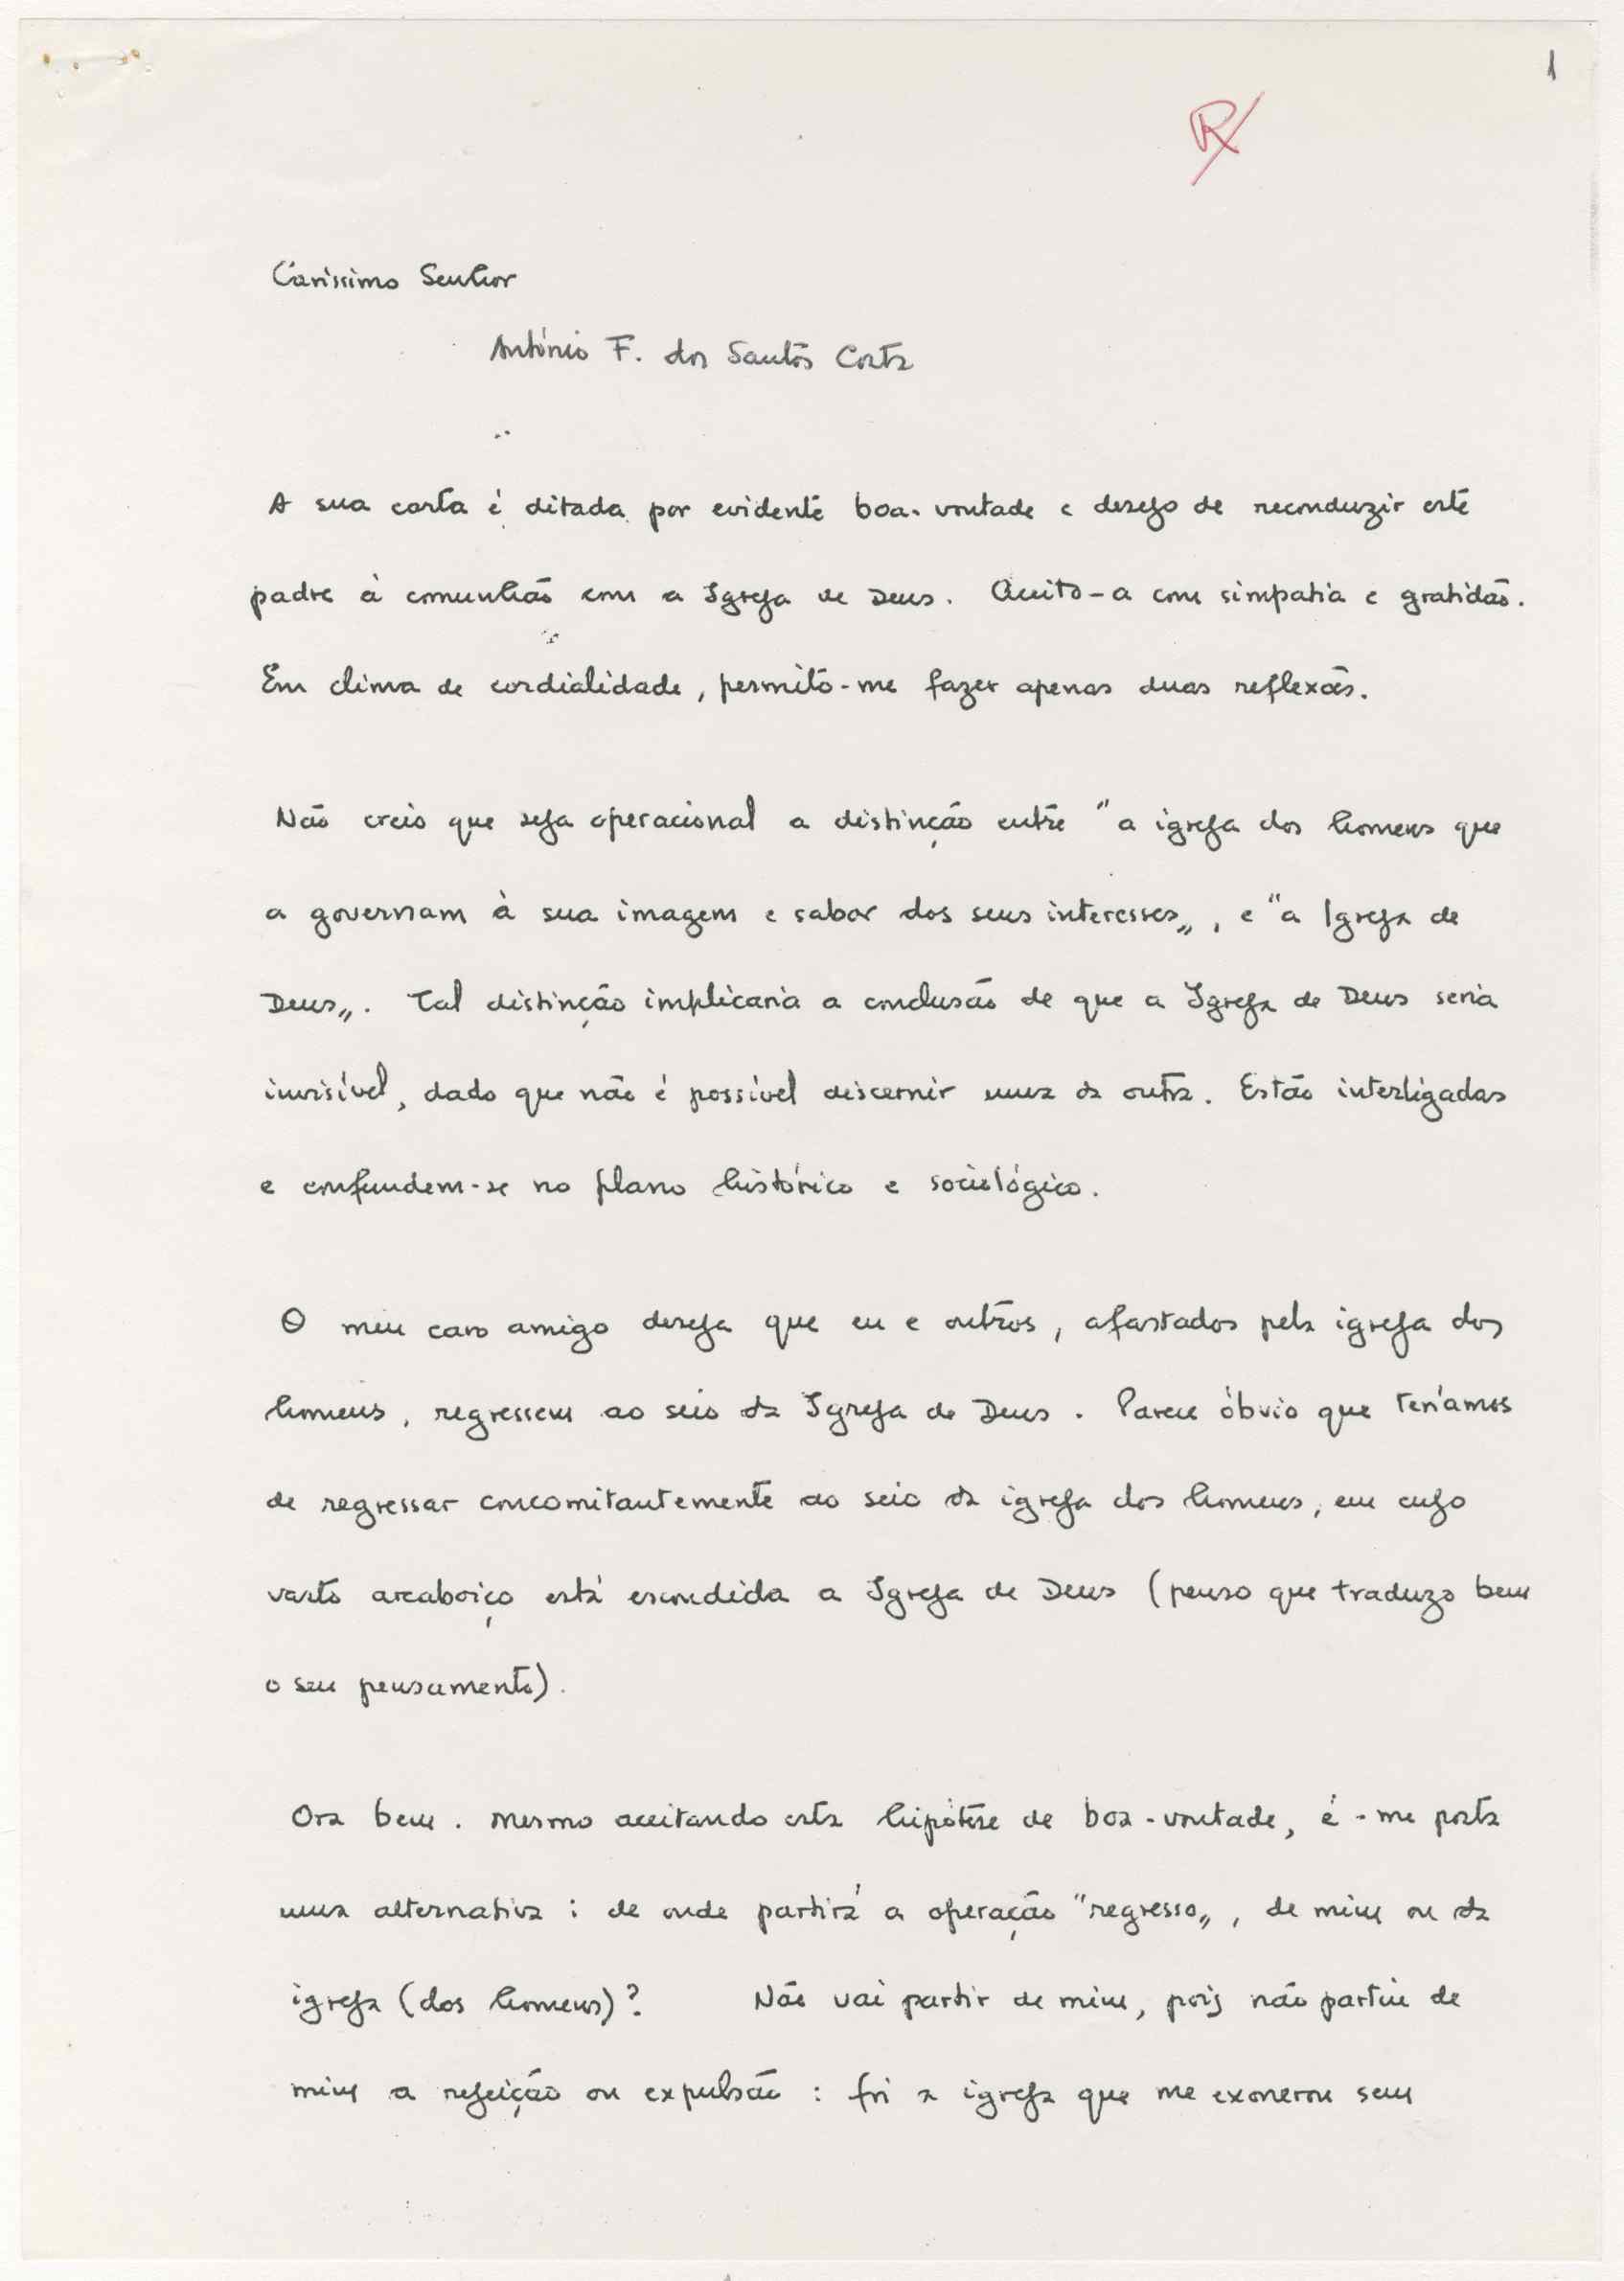 1
R
Caríssimo Senhor
António F. dos Santos Costa
A sua carta é ditada por evidente boa-vontade e desejo de reconduzir este
padre à comunhão com a Igreja de Deus. Aceito-a com simpatia e gratidão.
Em clima de cordialidade, permito-me fazer apenas duas reflexões.
Não creio que seja operacional a distinção entre "a igreja dos homens que
a governam à sua imagem e sabor dos seus interesses„, e "a Igreja de
Deus„. Tal distinção implicaria a conclusão de que a Igreja de Deus seria
invisível, dado que não é possível discernir uma da outra. Estão interligadas
e confundem-se no plano histórico e sociológico.
O meu caro amigo deseja que eu e outros, afastados pela igreja dos
homens, regressem ao seio da Igreja de Deus. Parece óbvio que teríamos
de regressar concomitantemente ao seio da igreja dos homens, em cujo
vasto arcaboiço está escondida a Igreja de Deus (penso que traduzo bem
o seu pensamento).
Ora bem. Mesmo aceitando esta hipótese de boa-vontade, é-me posta
uma alternativa: de onde partirá a operação "regresso„, de mim ou da
igreja (dos homens)? Não vai partir de mim, pois não partiu de
mim a rejeição ou expulsão: foi a igreja que me exonerou sem